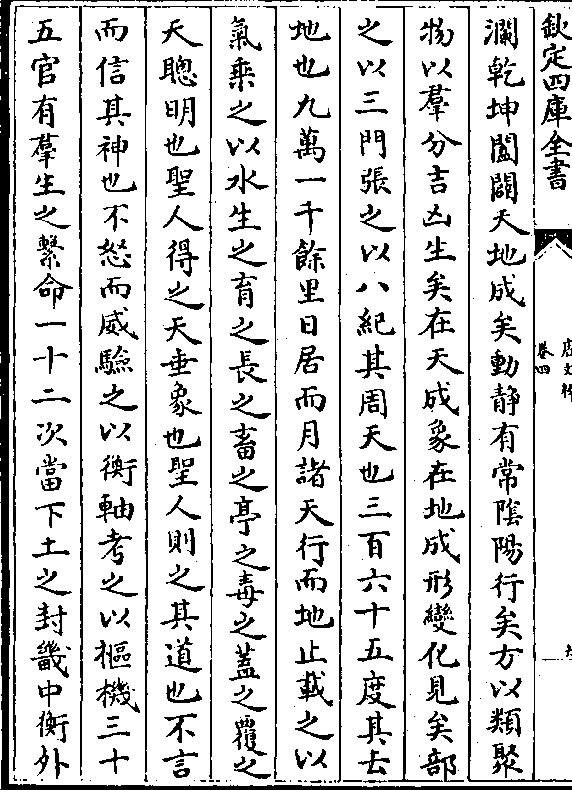 欽定四庫全書
卷四
瀾乾坤闔闢天地成矣動靜有常隂陽行矣方以類聚
物以羣分吉凶生矣在天成象在地成形變化見矣部
之以三門張之以八紀其周天也三百六十五度其去
地也九萬一千餘里日居而月諸天行而地止載之以
氣乗之以水生之育之長之畜之亭之毒之蓋之覆之
天聰明也聖人得之天垂象也聖人則之其道也不言
而信其神也不怒而威驗之以衡軸考之以樞機三十
五官有羣生之繫命一十二次當下土之封畿中衡外